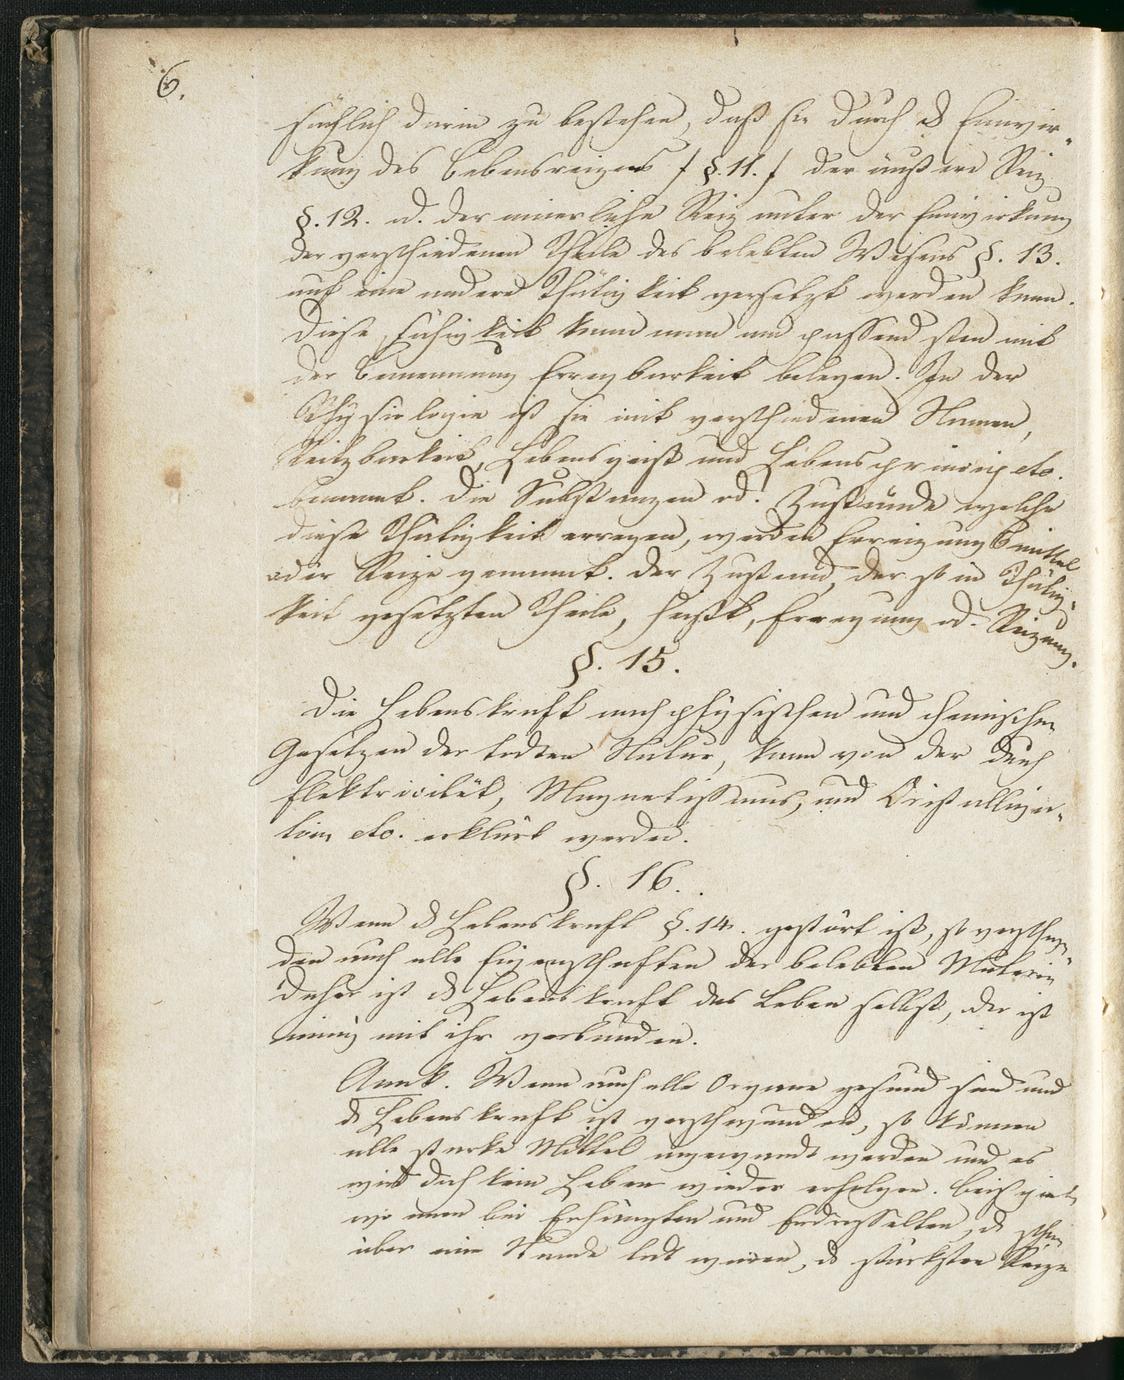 6.
sächlich darin zu bestehen, daß sie durch d Einwir-
kung des Lebensreizes /§. 11./ der äußere Reiz
§. 12. od. der innerliche Reiz unter der Einwirkung
der verschiedenen Theile des belebten Wesens §. 13.
auf eine andere Thätigkeit versetzt werden kann.
Diese Fähigkeit kann man am passend sten mit
der Benennung Erregbarkeit belegen. In der
Physiologie ist sie mit verschiedenen Namen,
Reitzbarkeit, Lebensgeist und Lebensprincip etc.
benannt. Die Substanzen od. Zustände welche
diese Thätigkeit erregen, werden Erreizungsmittel
oder Reize genannt. Der Zustand, der so in Thätig-
keit gesetzten Theile, heißt, Erregung od. Reizung.
§. 15.
Die Lebenskraft nach physischen und chemischen
Gesetzen der todten Natur, kann von der durch
Elektricität, Magnetissmus, und Cristallisa-
tion etc. erklärt werden.
§. 16.
Wenn d Lebenskraft §. 14. gestört ist, so verschwin-
den auch alle Eigenschaften der belebten Materie
daher ist d Lebenskraft das Leben selbst, oder ist
innig mit ihr verbunden.
Anmk. Wenn auch alle Organe gesund sind und
d Lebenskraft ist verschwunden, so können
alle starke Mittel angewandt werden und es
wird doch kein Leben wieder erfolgen. Beispiel
wo man bei Erhängten und Erdrosselten, d schon
über eine Stunde todt waren, d stärksten Reize